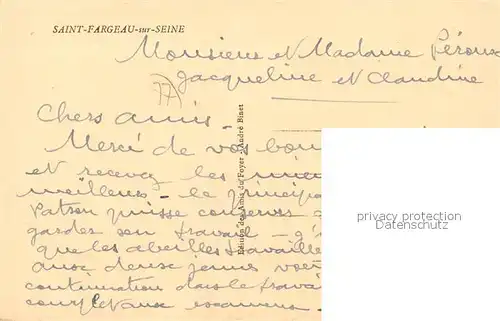 SAINT-FARGEAU-sur-SEINE
Monsieur et Madame Péroux
Jacqueline et Claudine
77
Chers amis -
Merci de vos bons
et recevez les
meilleurs - le principal
Patron puisse conserver
garder son travail -
que les abeilles travaille
aux deux jeunes
continuation dans le travail
examens -
Edition des Amis du Foyer - André Binet
privacy protection
Datenschutz